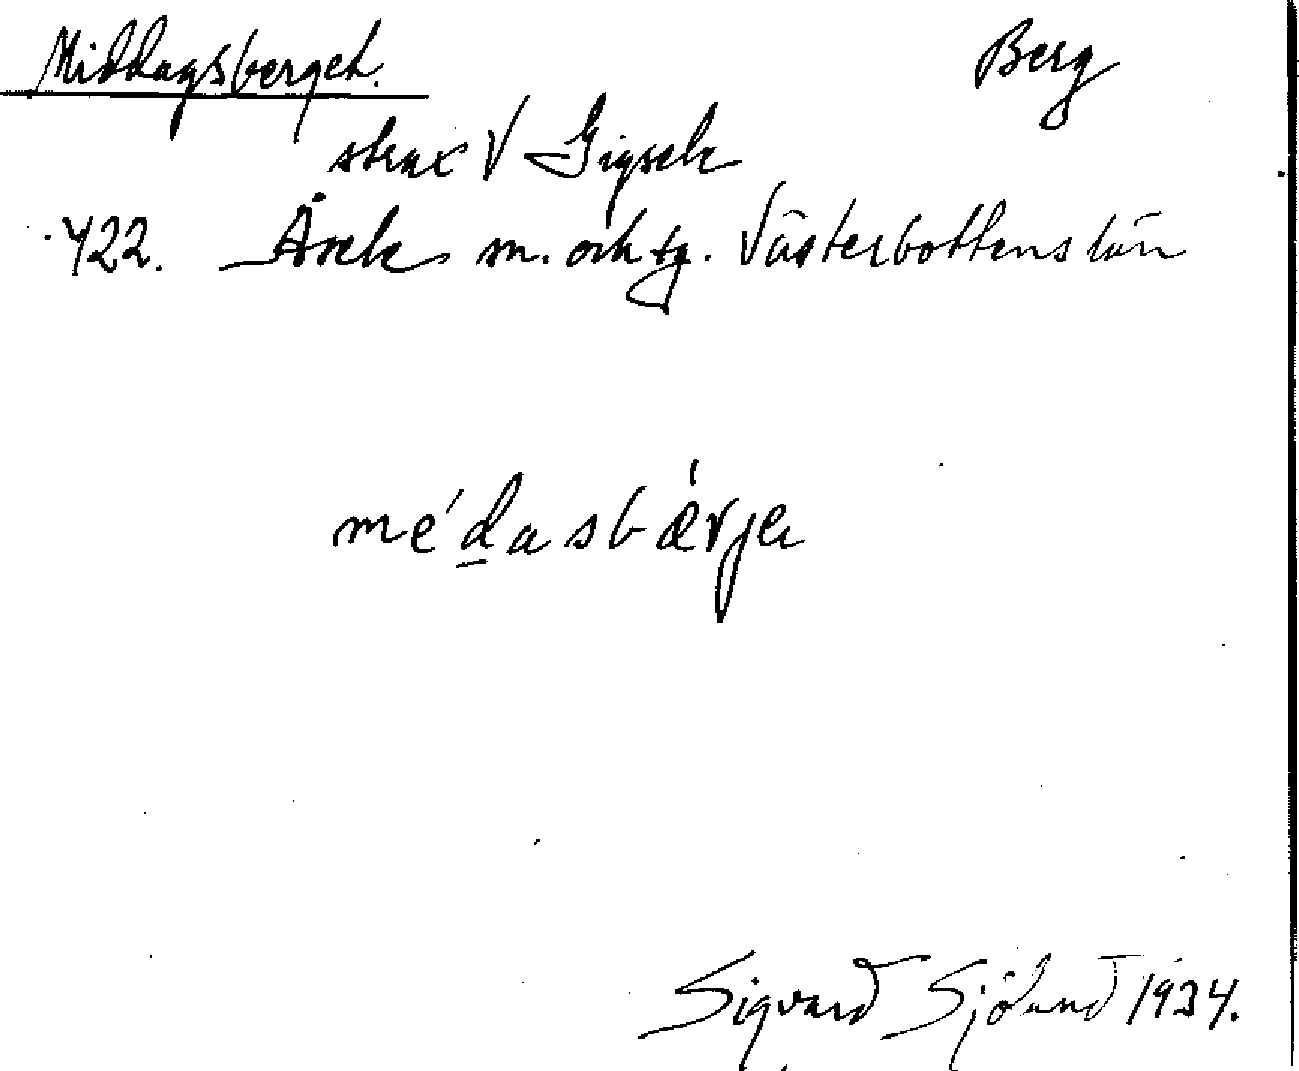 Middagsberget. Berg
strax V Gigsele
422. Åsele sn. och tg. Västerbottens län
médasbǽrjer
Sigvard Sjölund 1934.